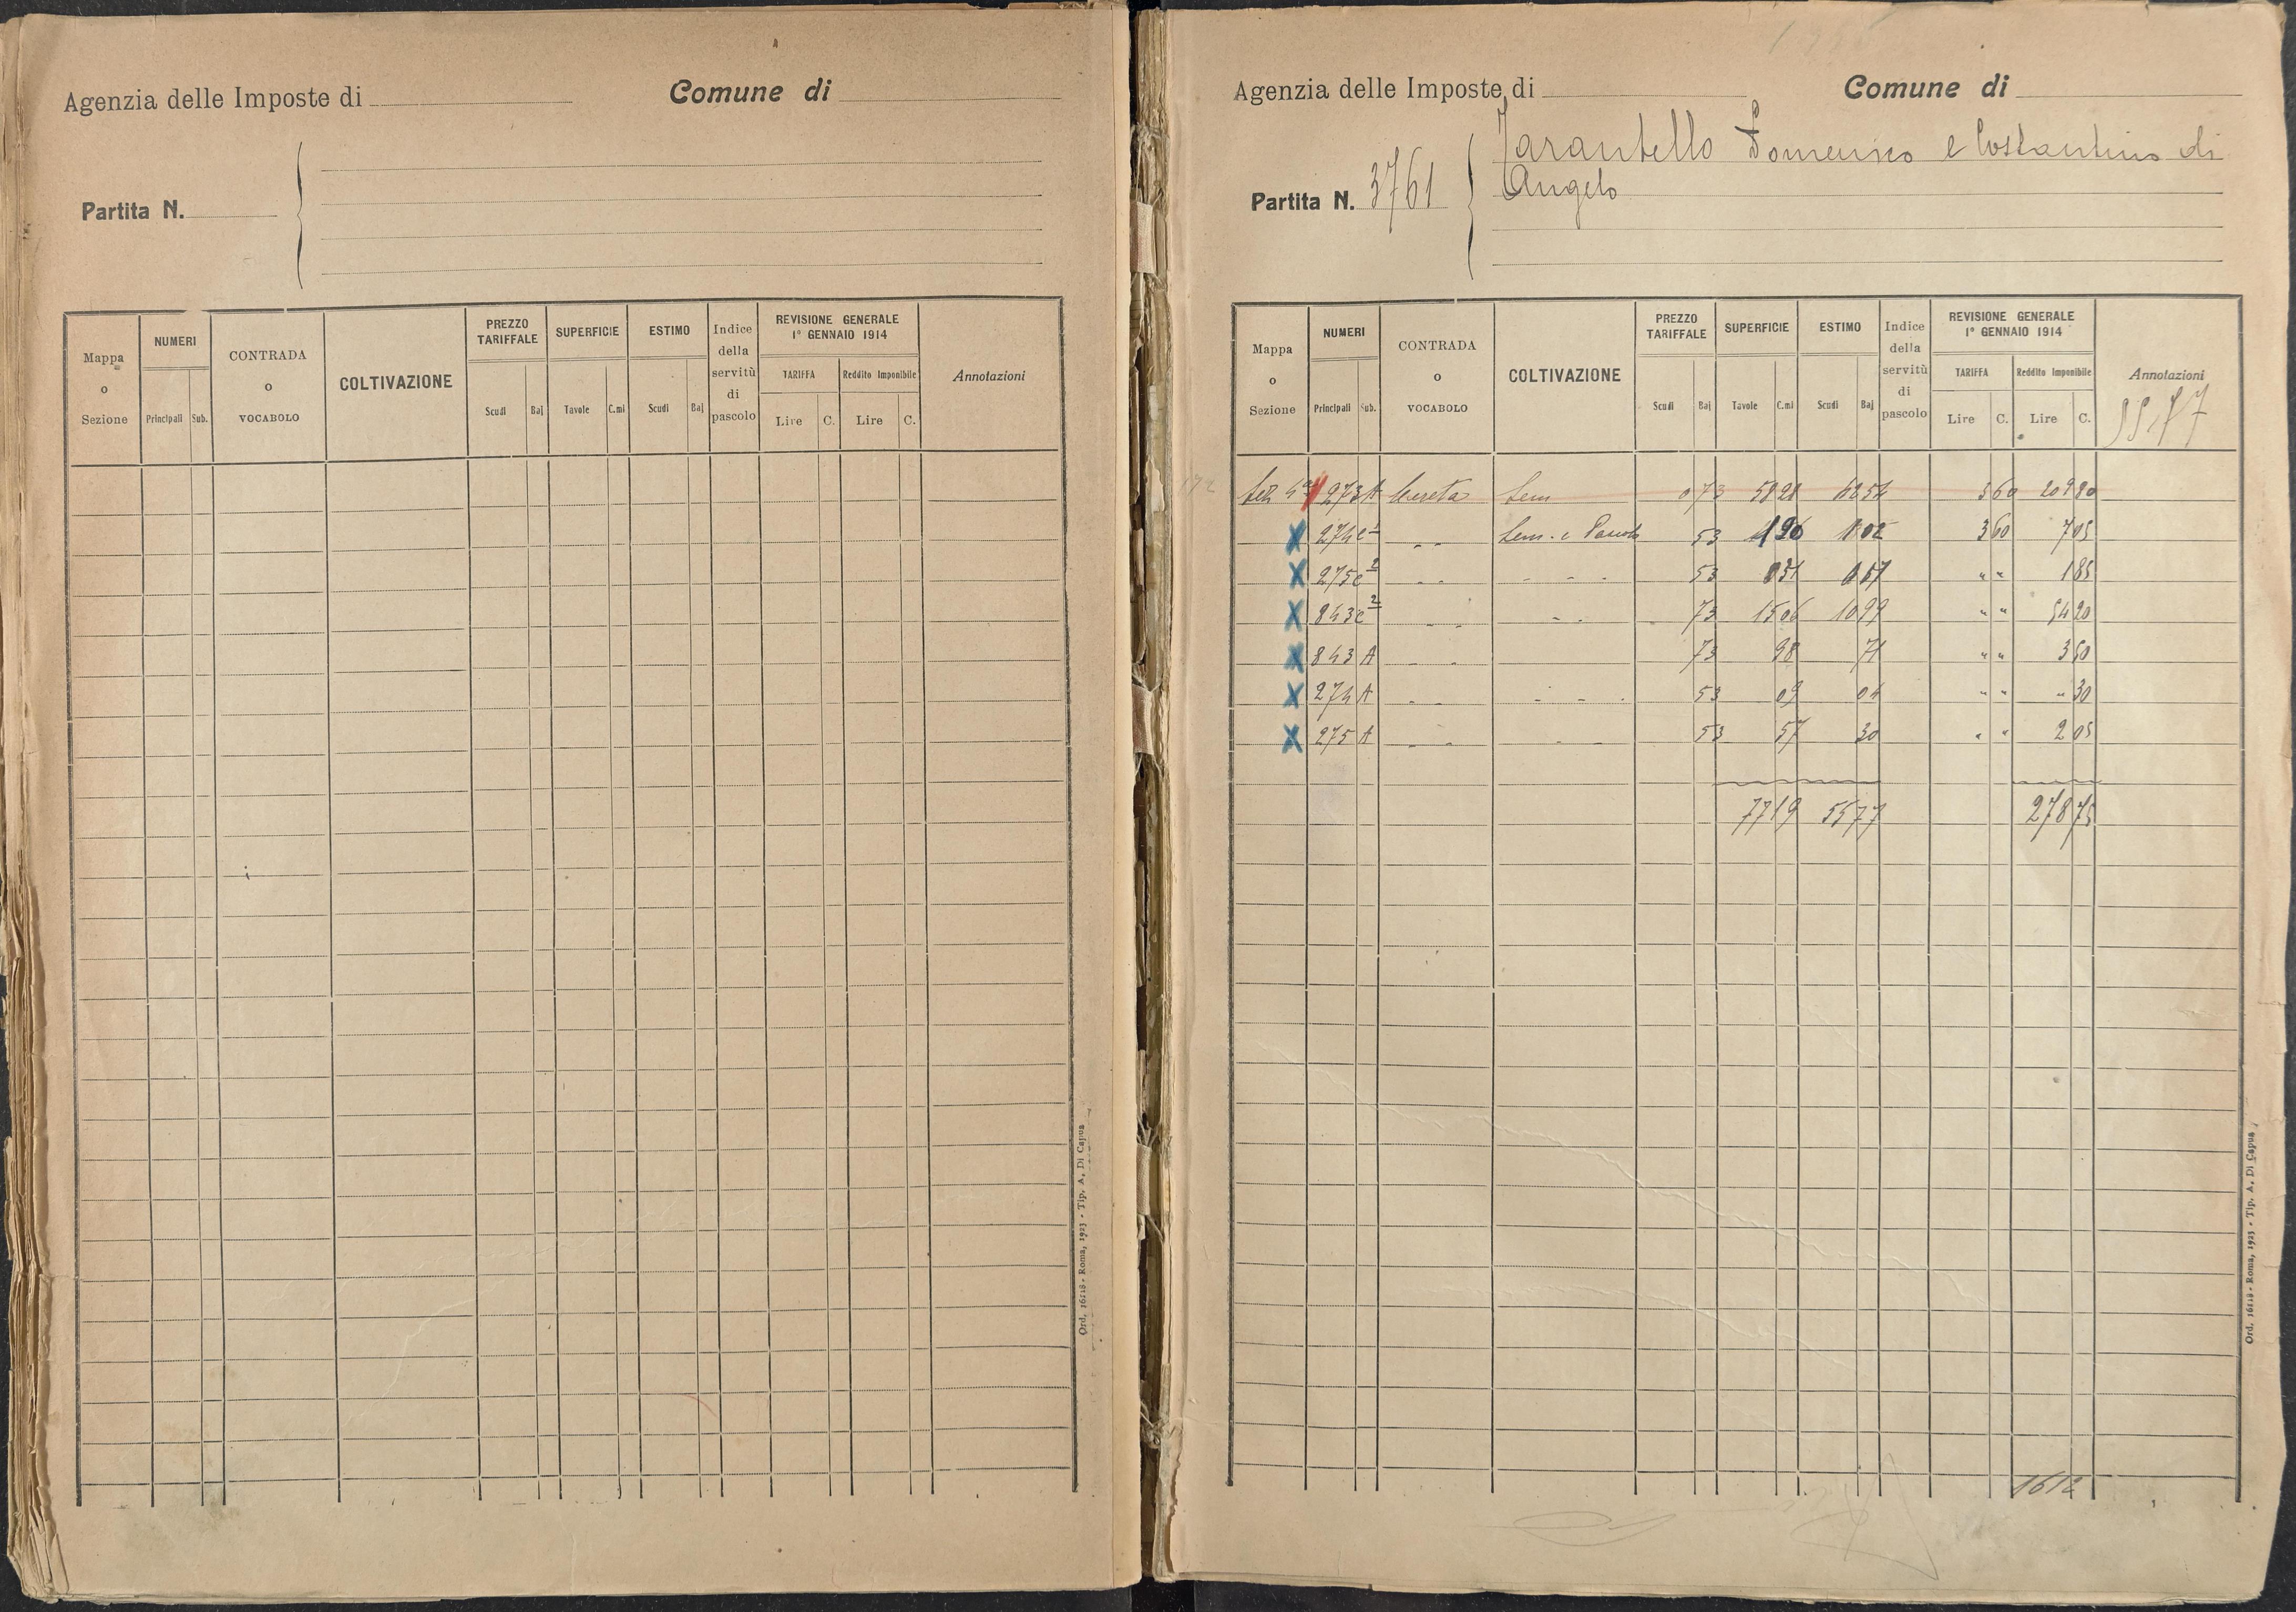 Agenzia delle Imposte di
Comune di
Partita N.
Mappa o Sezione
NUMERI
Principali Sub.
CONTRADA o VOCABOLO
COLTIVAZIONE
PREZZO TARIFFALE
Scudi Baj
SUPERFICIE
Tavole C.mi
ESTIMO
Scudi Baj
Indice della servitù di pascolo
REVISIONE GENERALE
1° GENNAIO 1914
TARIFFA
Lire C.
Reddito Imponibile
Lire C.
Annotazioni
Ord. 16118 - Roma, 1923 - Tip. A. Di Capua
Agenzia delle Imposte di
Comune di
Partita N. 3761
Tarantello Domenico e Costantino di
Angelo
Mappa o Sezione
NUMERI
Principali Sub.
CONTRADA o VOCABOLO
COLTIVAZIONE
PREZZO TARIFFALE
Scudi Baj
SUPERFICIE
Tavole C.mi
ESTIMO
Scudi Baj
Indice della servitù di pascolo
REVISIONE GENERALE
1° GENNAIO 1914
TARIFFA
Lire C.
Reddito Imponibile
Lire C.
Annotazioni
5577
Sez 4a 273 A Cureta Sem 0 73 58 28 42 54 3 60 209 80
X 274 c1 " " Sem. e Pascolo 53 1 96 1 02 3 60 7 05
X 275 c2 " " " " 53 0 51 0 27 " " 1 85
X 843 c2 " " " " 73 15 06 10 99 " " 54 20
X 843 A " " 73 98 71 " " 3 50
X 274 A " " " " 53 09 04 " " " 30
X 275 A " " " " 53 57 30 " " 2 05
77 19 55 77 278 75
1612
Ord. 16118 - Roma, 1923 - Tip. A. Di Capua